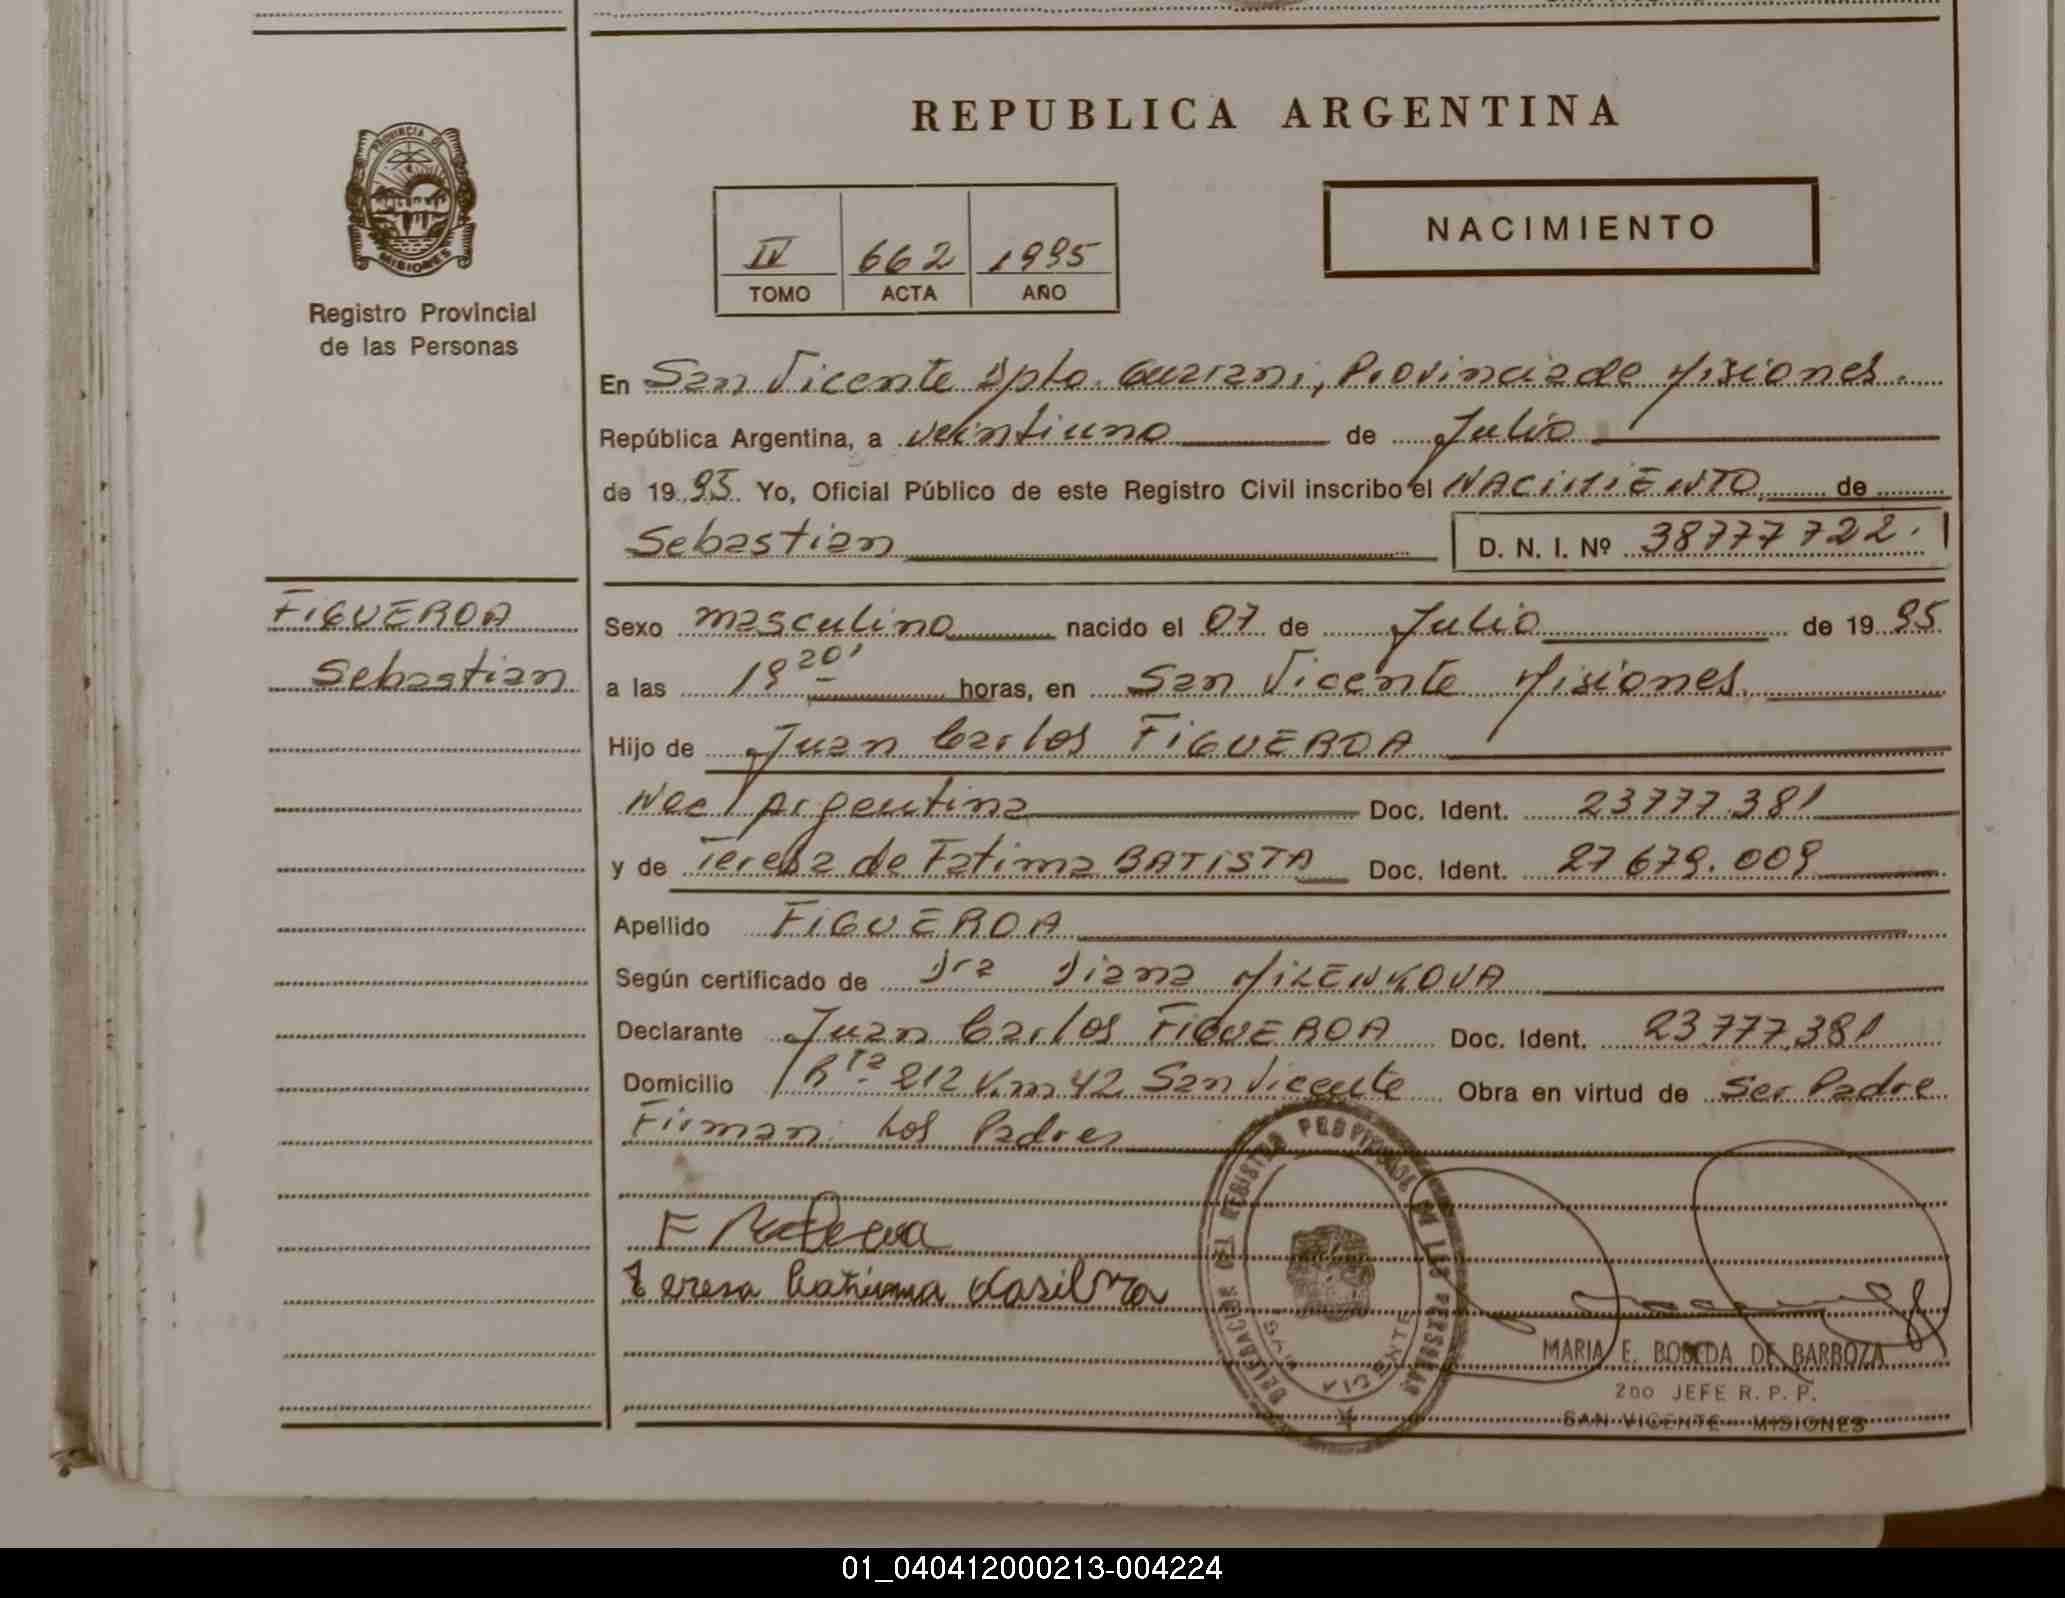 PROVINCIA DE
MISIONES
Registro Provincial
de las Personas
REPUBLICA ARGENTINA
IV 662 1995
TOMO ACTA AÑO
NACIMIENTO
En San Vicente Dpto. Guarani, Provincia de Misiones.
República Argentina, a veintiuno de Julio
de 19 95 Yo, Oficial Público de este Registro Civil inscribo el NACIMIENTO de
Sebastian D. N. I. Nº 38777722.
FIGUEROA
Sebastian
Sexo masculino nacido el 07 de Julio de 19 95
a las 19 20' horas, en San Vicente Misiones.
Hijo de Juan Carlos FIGUEROA
Nac Argentina Doc. Ident. 23777.381
y de Teresa de Fatima BATISTA Doc. Ident. 27679.009
Apellido FIGUEROA
Según certificado de Dra Diana MILENKOVA
Declarante Juan Carlos FIGUEROA Doc. Ident. 23.777.381
Domicilio Rta 212 Km 42 San Vicente Obra en virtud de Ser Padre
Firman: Los Padres
Teresa dasilva
DELEGACION DEL REGISTRO PROVINCIAL DE LAS PERSONAS
SAN VICENTE
MARIA E. BOBEDA DE BARBOZA
2DO JEFE R. P. P.
SAN VICENTE - MISIONES
01_040412000213-004224